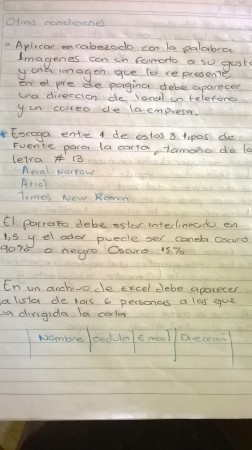 Otras condiciones
* Aplicar encabezado con la palabra
Imagenes con un formato a su gusto
y una imagen que la represente
en el pie de pagina debe aparecer
una dirección de local un telefono
y un correo de la empresa.
* Escoga entre 1 de estos 3 tipos de
fuente para la carta, tamaño de la
letra # 13
Arial Narrow
Arial
Times New Roman
El parrafo debe estar interlineado en
1,5 y el color puede ser canela oscuro
90% o negro Oscuro 15%
En un archivo de excel debe aparecer
la lista de las 6 personas a las que
va dirigida la carta
Nombre | cedula | Email | Dirección